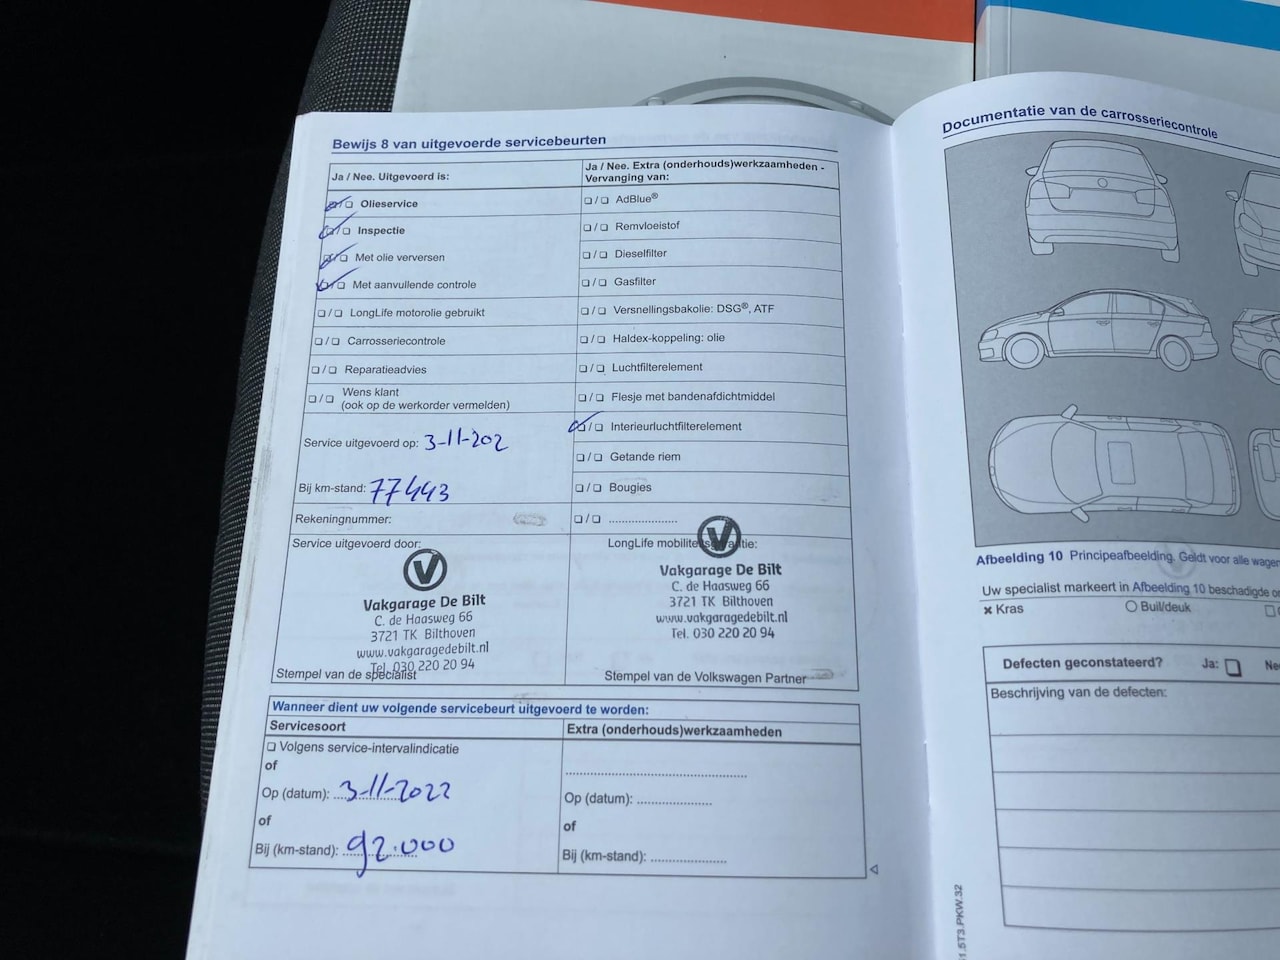 Bewijs 8 van uitgevoerde servicebeurten
Ja / Nee. Uitgevoerd is:
Olieservice
Inspectie
Met olie verversen
Met aanvullende controle
LongLife motorolie gebruikt
Carrosseriecontrole
Reparatieadvies
Wens klant
(ook op de werkorder vermelden)
Service uitgevoerd op: 3-11-202
Bij km-stand: 77443
Rekeningnummer:
Ja / Nee. Extra (onderhouds)werkzaamheden -
Vervanging van:
AdBlue®
Remvloeistof
Dieselfilter
Gasfilter
Versnellingsbakolie: DSG®, ATF
Haldex-koppeling: olie
Luchtfilterelement
Flesje met bandenafdichtmiddel
Interieurluchtfilterelement
Getande riem
Bougies
Service uitgevoerd door:
V
Vakgarage De Bilt
C. de Haasweg 66
3721 TK Bilthoven
www.vakgaragedebilt.nl
Tel. 030 220 20 94
Stempel van de specialist
LongLife mobiliteitsgarantie:
V
Vakgarage De Bilt
C. de Haasweg 66
3721 TK Bilthoven
www.vakgaragedebilt.nl
Tel. 030 220 20 94
Stempel van de Volkswagen Partner
Wanneer dient uw volgende servicebeurt uitgevoerd te worden:
Servicesoort
Volgens service-intervalindicatie
of
Op (datum): 3-11-2022
of
Bij (km-stand): 92.000
Extra (onderhouds)werkzaamheden
Op (datum):
of
Bij (km-stand):
Documentatie van de carrosseriecontrole
Afbeelding 10 Principeafbeelding. Geldt voor alle wagen
Uw specialist markeert in Afbeelding 10 beschadigde
Kras
Buil/deuk
Defecten geconstateerd? Ja:
Beschrijving van de defecten:
1.5T3.PKW.32